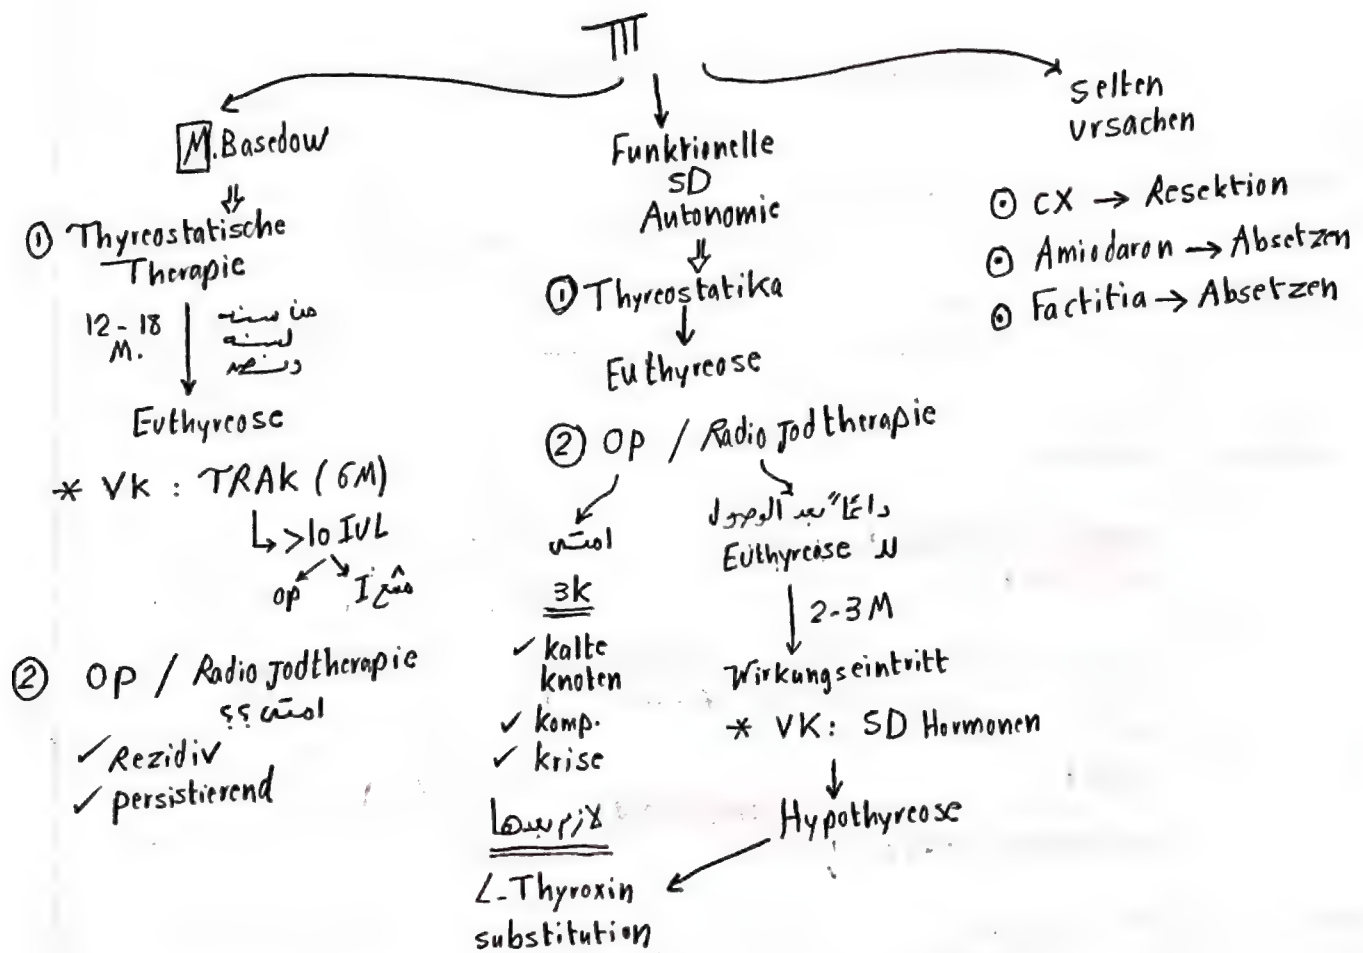 TTT
M.Basedow
⇓
① Thyreostatische
Therapie
12 - 18
M.
من سنه
لسنه
ونصف
Euthyreose
* VK : TRAK (6M)
↳ >10 IUL
op
مشع I
② Op / Radio Jodtherapie
امتى ؟؟
✓ Rezidiv
✓ persistierend
Funktionelle
SD
Autonomie
⇓
① Thyreostatika
↓
Euthyreose
② Op / Radio Jodtherapie
امتى
3K
✓ kalte
knoten
✓ komp.
✓ krise
لازم بعدها
L-Thyroxin
substitution
دائماً بعد الوصول
لل Euthyreose
↓ 2-3 M
Wirkungseintritt
* VK: SD Hormonen
↓
Hypothyreose
selten
ursachen
⊙ CX → Resektion
⊙ Amiodaron → Absetzen
⊙ Factitia → Absetzen